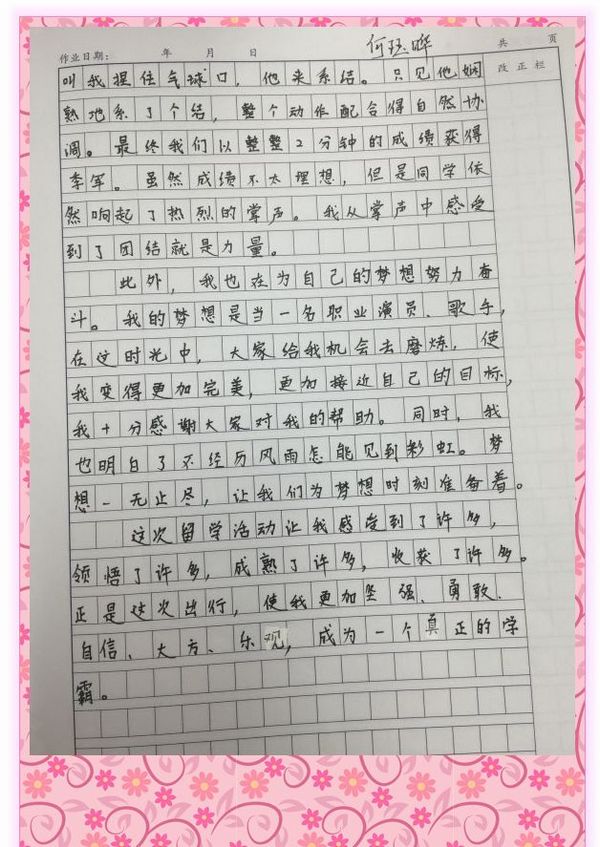 何珏晔
作业日期： 年 月 日
共 页
改正栏
叫我捏住气球口，他来系结。只见他娴
熟地系了个结，整个动作配合得自然协
调。最终我们以整整2分钟的成绩获得
季军。虽然成绩不太理想，但是同学依
然响起了热烈的掌声。我从掌声中感受
到了团结就是力量。
此外，我也在为自己的梦想努力奋
斗。我的梦想是当一名职业演员、歌手，
在这时光中，大家给我机会去磨炼，使
我变得更加完美，更加接近自己的目标，
我十分感谢大家对我的帮助。同时，我
也明白了不经历风雨怎能见到彩虹。梦
想－无止尽，让我们为梦想时刻准备着。
这次留学活动让我感受到了许多，
领悟了许多，成熟了许多，收获了许多。
正是这次出行，使我更加坚强、勇敢、
自信、大方、乐观，成为一个真正的学
霸。